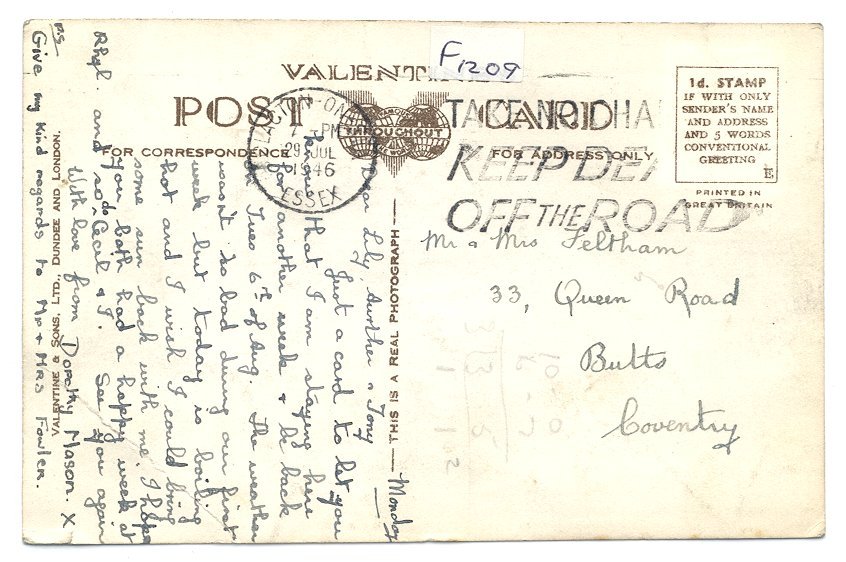 F1209
VALENTINE'S
POST CARD
THROUGHOUT
FOR CORRESPONDENCE
FOR ADDRESS ONLY
CLACTON-ON
7 - PM
29 JUL
1946
ESSEX
TAKE NO CHA
KEEP DEA
OFF THE ROAD
1d. STAMP
IF WITH ONLY
SENDER'S NAME
AND ADDRESS
AND 5 WORDS
CONVENTIONAL
GREETING
E
PRINTED IN
GREAT BRITAIN
Mr & Mrs Feltham
33, Queen Road
Butts
Coventry
THIS IS A REAL PHOTOGRAPH
VALENTINE & SONS, LTD., DUNDEE AND LONDON.
Monday
Dear Lily, Aurther & Tony
Just a card to let you
that I am staying here
for another week & be back
Tues 6th of Aug. The weather
wasn't so bad during our first
week but today is boiling
hot and I wish I could bring
some sun back with me. I hope
you both had a happy week at
Rhyl. and so do Cecil & J. See you again
With love from Dorothy Mason. X
P.S
Give my kind regards to Mr & Mrs Fowler.